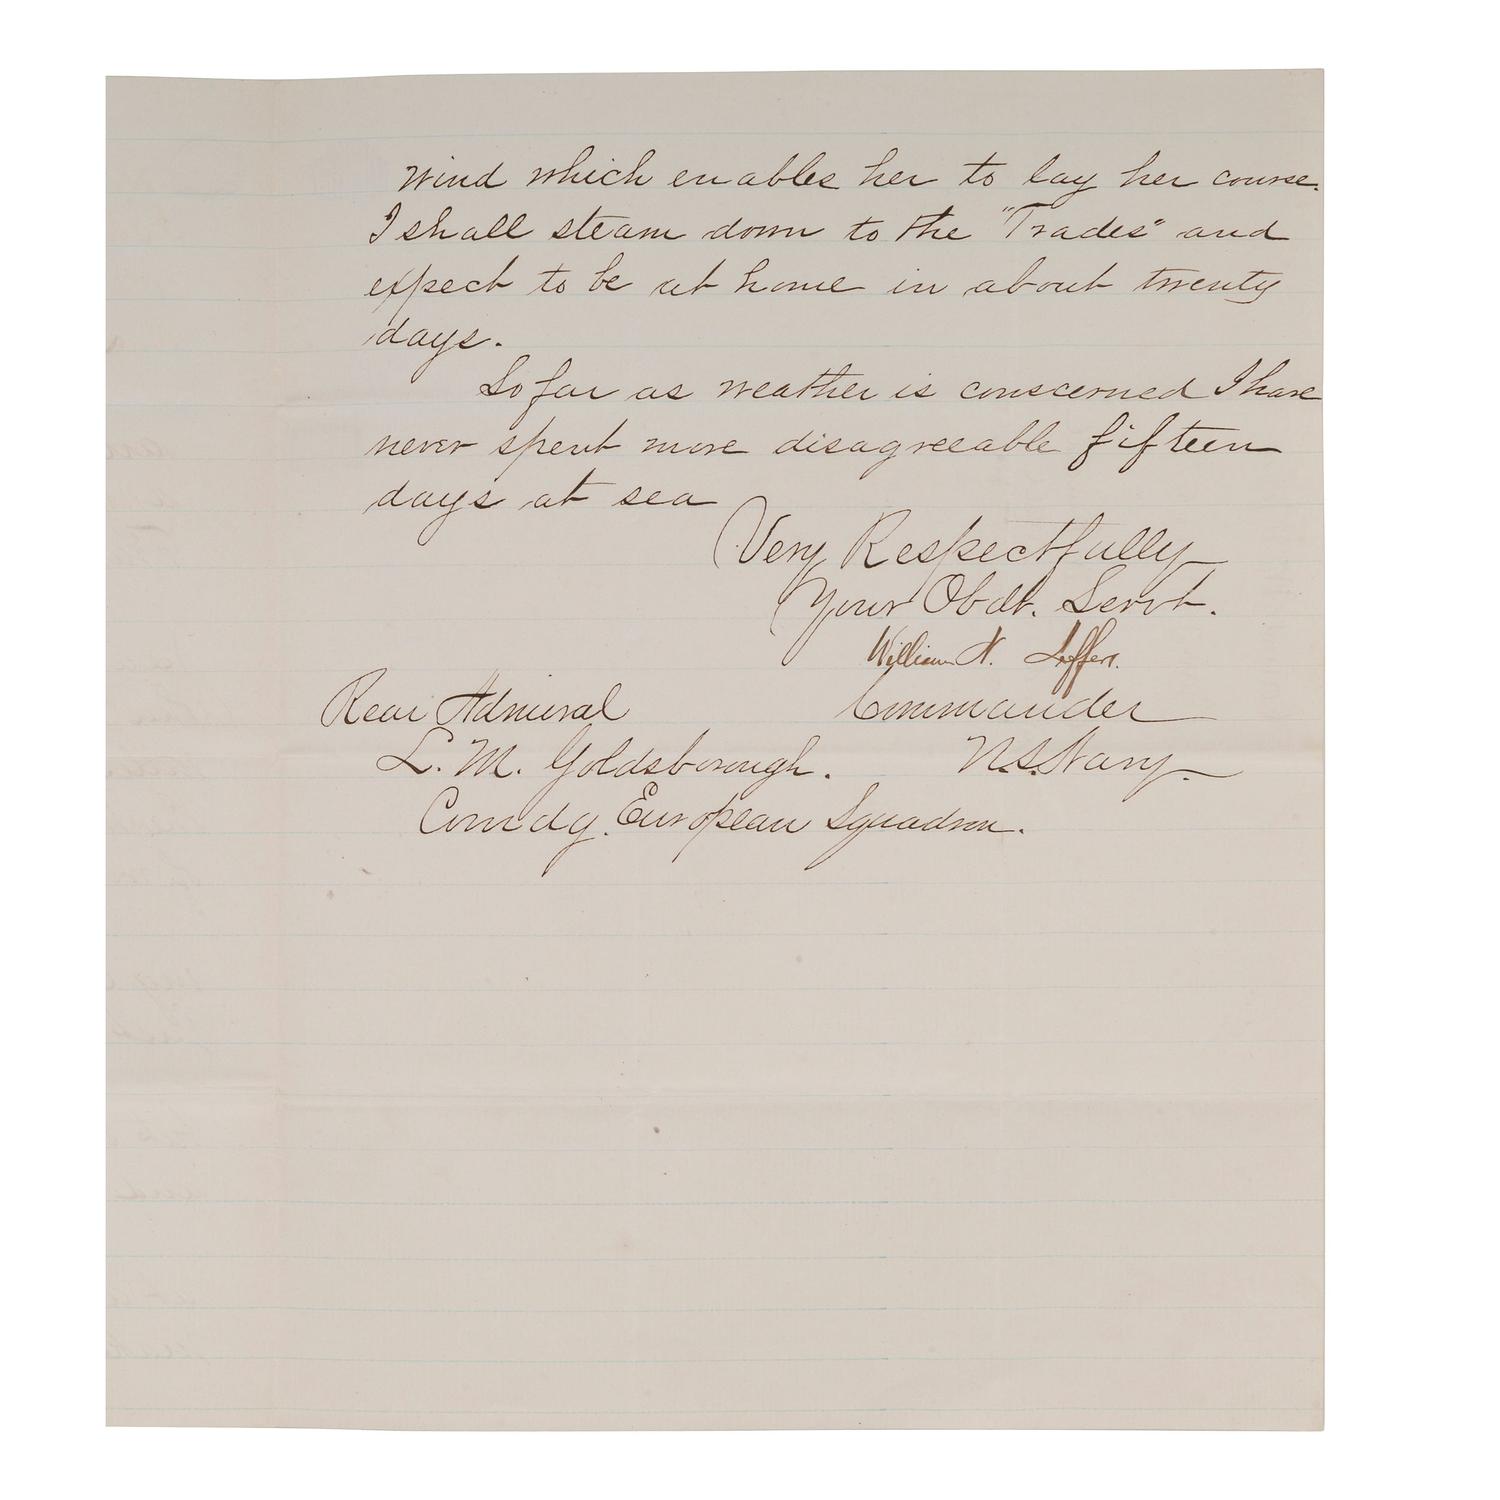 wind which enables her to lay her course.
I shall steam down to the "Trades" and
expect to be at home in about twenty
days.
So far as weather is conscerned I have
never spent more disagreeable fifteen
days at sea
Very Respectfully
Your Obdt. Servt.
William N. Jeffers.
Rear Admiral Commander
L. M. Goldsborough. U.S. Navy.
Comdg. European Squadron.